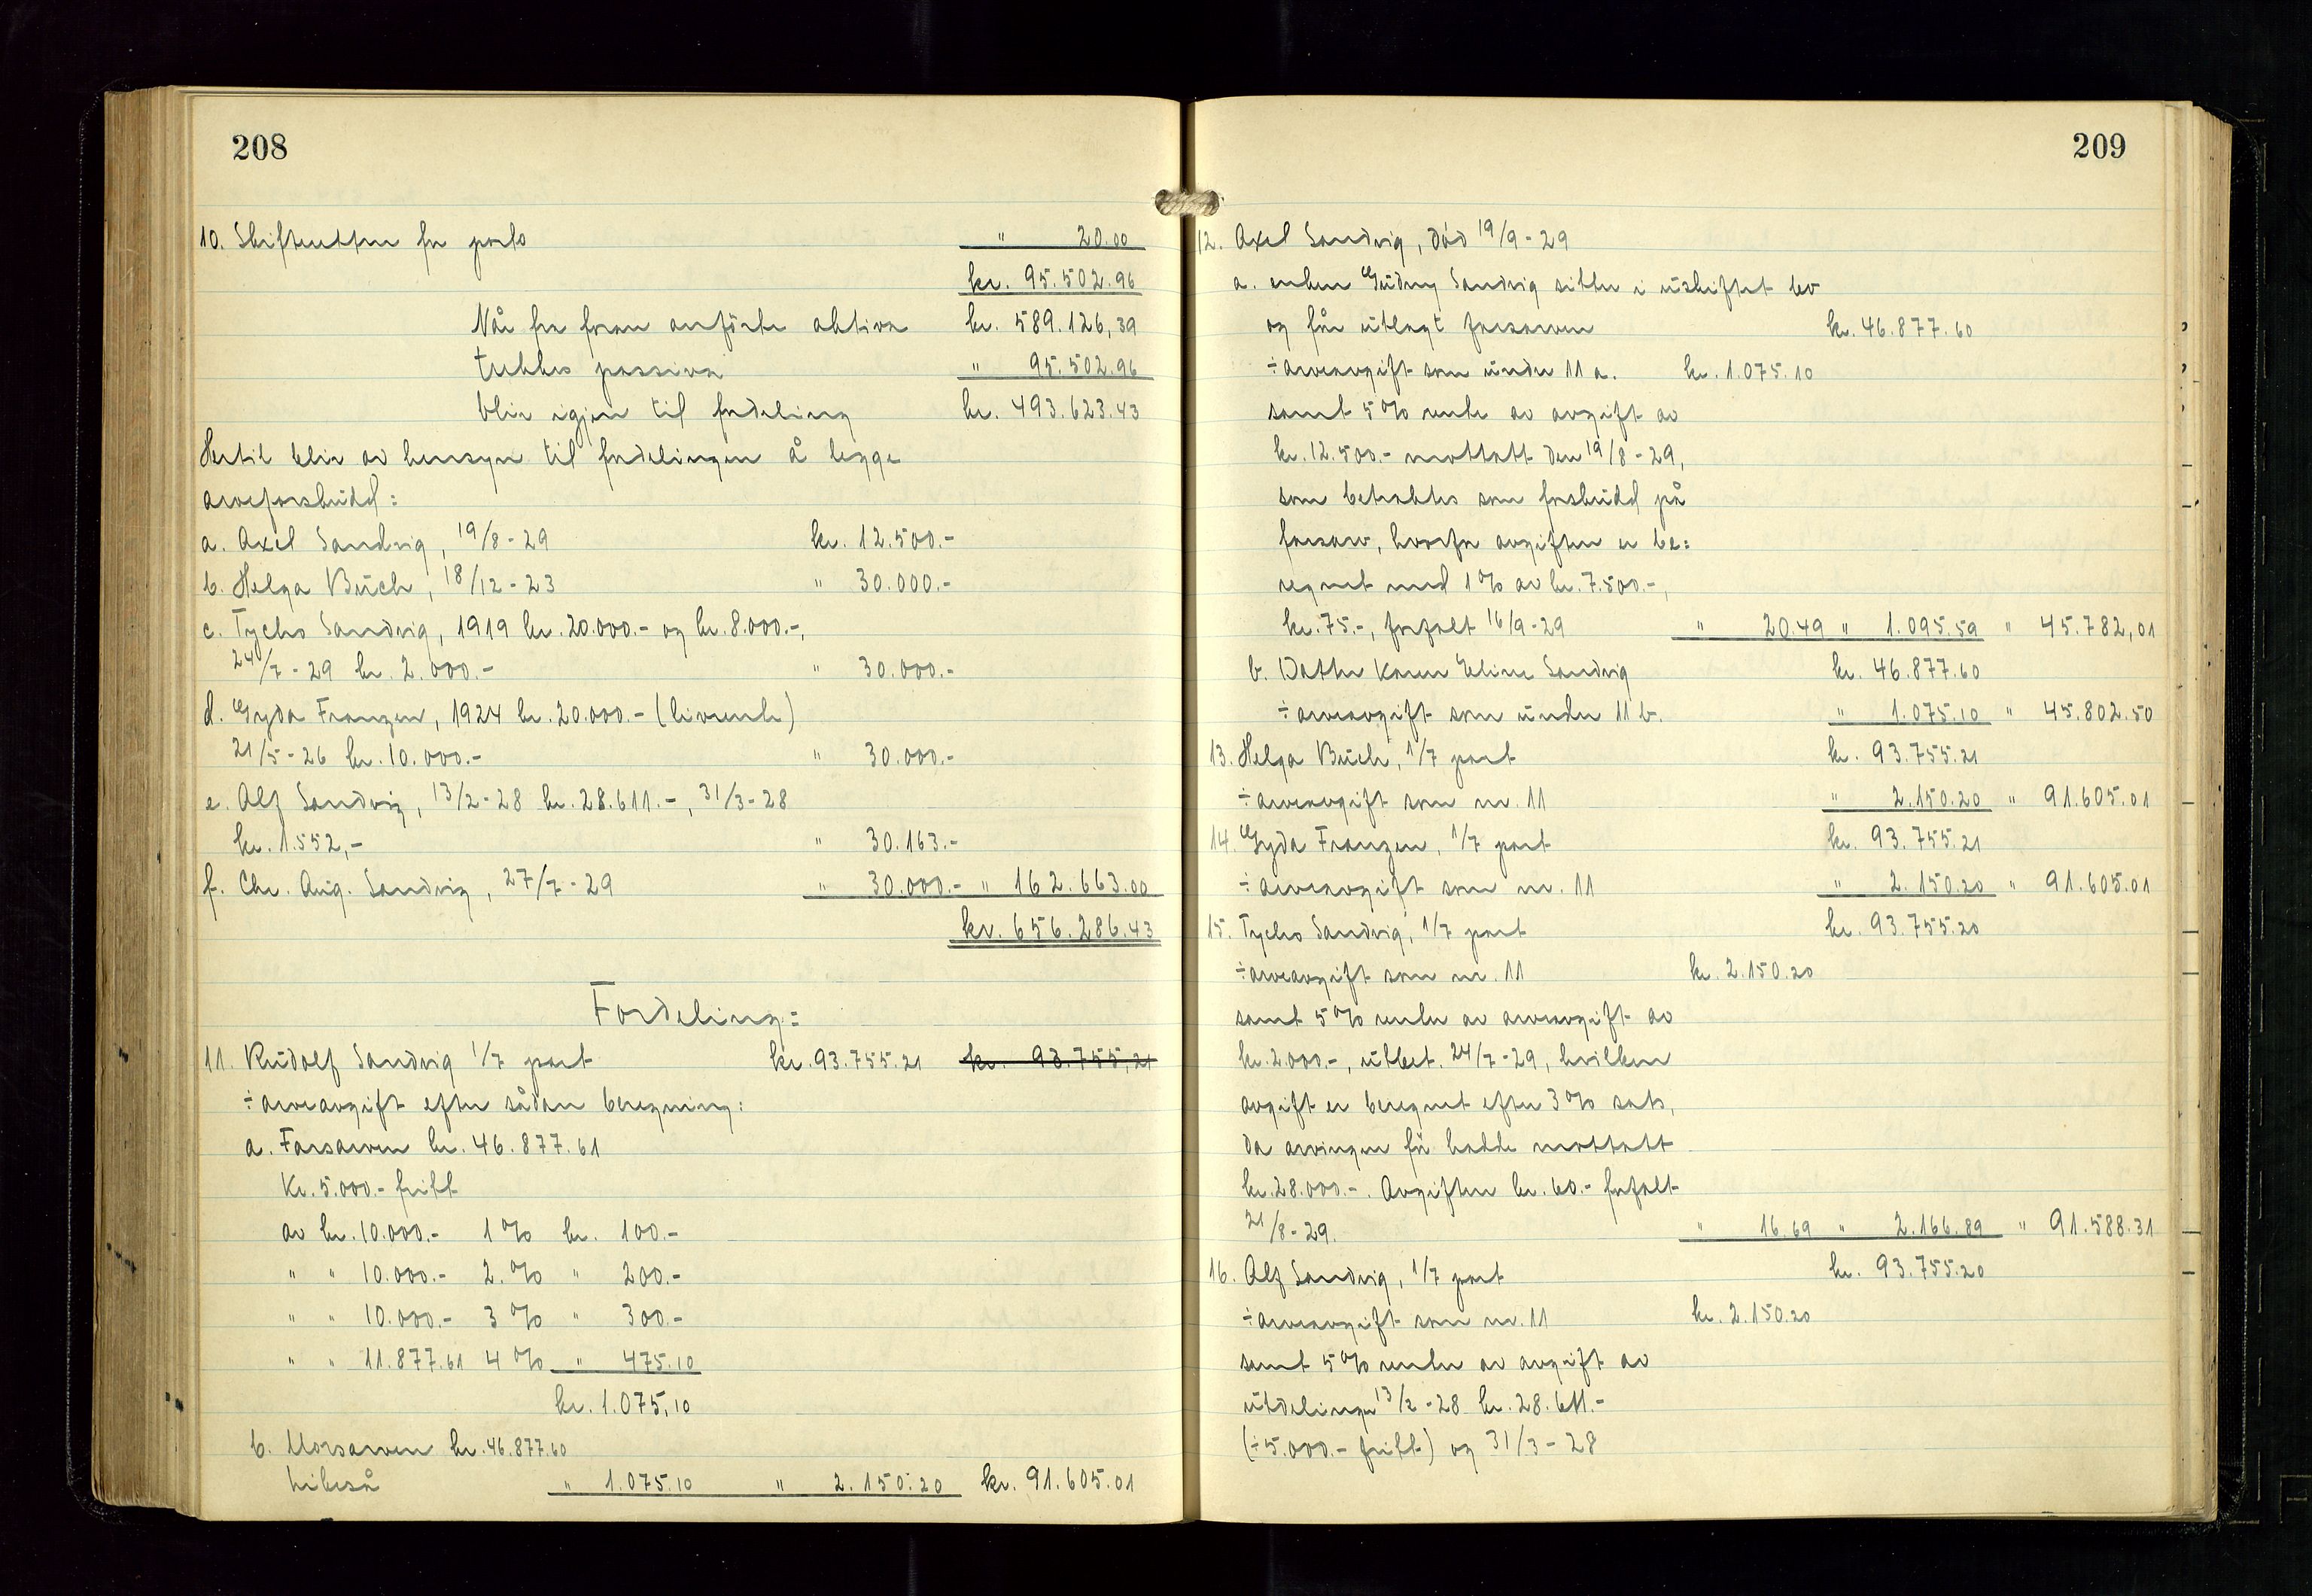 208
10. Skifteretten for porto " 20.00
kr. 95.502.96
Når fra foran anförte aktiva kr. 589.126,39
trekkes passiva " 95.502.96
blir igjen til fordeling kr. 493.623.43
Hertil blir av hensyn til fordelingen å legge
arveforskudd:
a. Axel Sandvig, 19/8-29 kr. 12.500.-
b. Helga Büch, 18/12-23 " 30.000.-
c. Tycho Sandvig, 1919 kr. 20.000.- og kr. 8.000.-,
24/7-29 kr. 2.000.- " 30.000.-
d. Gyda Franzen, 1924 kr. 20.000.- (livrente)
21/5-26 kr. 10.000.- " 30.000.-
e. Alf Sandvig, 13/2-28 kr. 28.611.-, 31/3-28
kr. 1.552,- " 30.163.-
f. Chr. Aug. Sandvig, 27/7-29 " 30.000.- " 162.663.00
kr. 656.286.43
Fordeling:
11. Rudolf Sandvig 1/7 part kr. 93.755.21 kr. 93.755,21
÷ arveavgift efter sådan beregning:
a. Farsarven kr. 46.877.61
Kr. 5.000.- fritt
av kr. 10.000.- 1% kr. 100.-
" " 10.000.- 2.% " 200.-
" " 10.000.- 3% " 300.-
" " 11.877.61 4% " 475.10
kr. 1.075,10
b. Morsarven kr. 46.877.60
likeså " 1.075.10 " 2.150.20 kr. 91.605.01
209
12. Axel Sandvig, död 19/9-29
a. enken Gudny Sandvig sitter i uskiftet bo
og får utlagt farsarven kr. 46.877.60
÷ arveavgift som under 11 a. kr. 1.075.10
samt 5% rente av avgift av
kr. 12.500.- mottatt den 19/8-29,
som betraktes som forskudd på
farsarv, hvorfor avgiften er be:
regnet med 1% av kr. 7.500.-,
kr. 75.-, forfalt 16/9-29 " 20.49 " 1.095.59 " 45.782,01
b. Datter Karen Eline Sandvig kr. 46.877.60
÷ arveavgift som under 11 b. " 1.075.10 " 45.802.50
13. Helga Büch, 1/7 part kr. 93.755.21
÷ arveavgift som nr. 11 " 2.150.20 " 91.605.01
14. Gyda Franzen, 1/7 part kr. 93.755.21
÷ arveavgift som nr. 11 " 2.150.20 " 91.605.01
15. Tycho Sandvig, 1/7 part kr. 93.755.20
÷ arveavgift som nr. 11 kr. 2.150.20
samt 5% renter av arveavgift av
kr. 2.000.-, utbet. 24/7-29, hvilken
avgift er beregnet efter 3% sats,
da arvingen för hadde mottatt
kr. 28.000.-. Avgiften kr. 60.- forfalt
21/8-29. " 16.69 " 2.166.89 " 91.588.31
16. Alf Sandvig, 1/7 part kr. 93.755.20
÷ arveavgift som nr. 11 kr. 2.150.20
samt 5% renter av avgift av
utdelingen 13/2-28 kr. 28.611.-
(÷ 5.000.- fritt) og 31/3-28